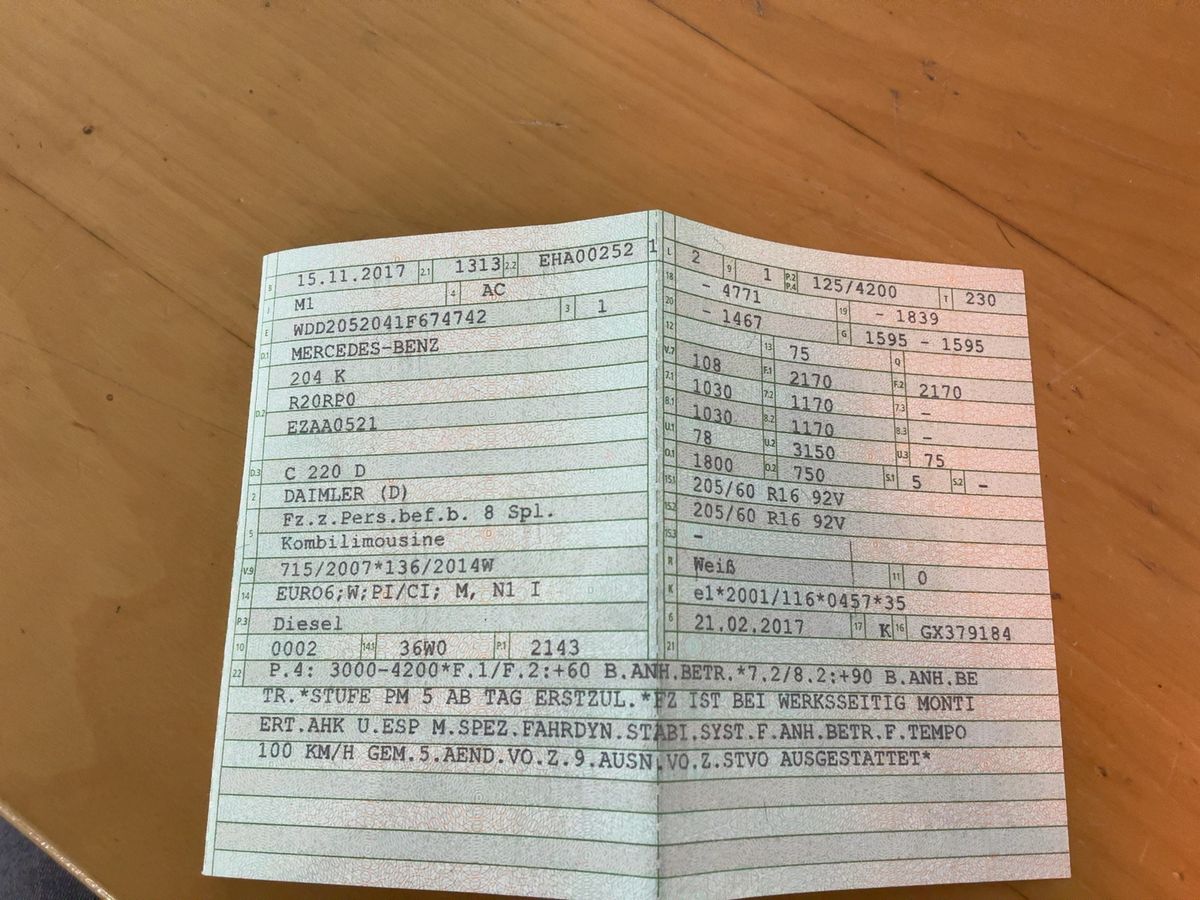 B 15.11.2017 2.1 1313 2.2 EHA00252 1
J M1 4 AC
E WDD2052041F674742 3 1
D.1 MERCEDES-BENZ
204 K
D.2 R20RP0
EZAA0521
D.3 C 220 D
2 DAIMLER (D)
Fz.z.Pers.bef.b. 8 Spl.
5 Kombilimousine
V.9 715/2007*136/2014W
14 EURO6;W;PI/CI; M, N1 I
P.3 Diesel
10 0002 14.1 36W0 P.1 2143
L 2 9 1 P.2 P.4 125/4200 T 230
18 - 4771 19 - 1839
20 - 1467 G 1595 - 1595
12 13 75 Q
V.7 108 F.1 2170 F.2 2170
7.1 1030 7.2 1170 7.3 -
8.1 1030 8.2 1170 8.3 -
U.1 78 U.2 3150 U.3 75
O.1 1800 O.2 750 S.1 5 S.2 -
15.1 205/60 R16 92V
15.2 205/60 R16 92V
15.3 -
R Weiß 11 0
K e1*2001/116*0457*35
6 21.02.2017 17 K 16 GX379184
21
22 P.4: 3000-4200*F.1/F.2:+60 B.ANH.BETR.*7.2/8.2:+90 B.ANH.BE
TR.*STUFE PM 5 AB TAG ERSTZUL.*FZ IST BEI WERKSSEITIG MONTI
ERT.AHK U.ESP M.SPEZ.FAHRDYN.STABI.SYST.F.ANH.BETR.F.TEMPO
100 KM/H GEM.5.AEND.VO.Z.9.AUSN.VO.Z.STVO AUSGESTATTET*